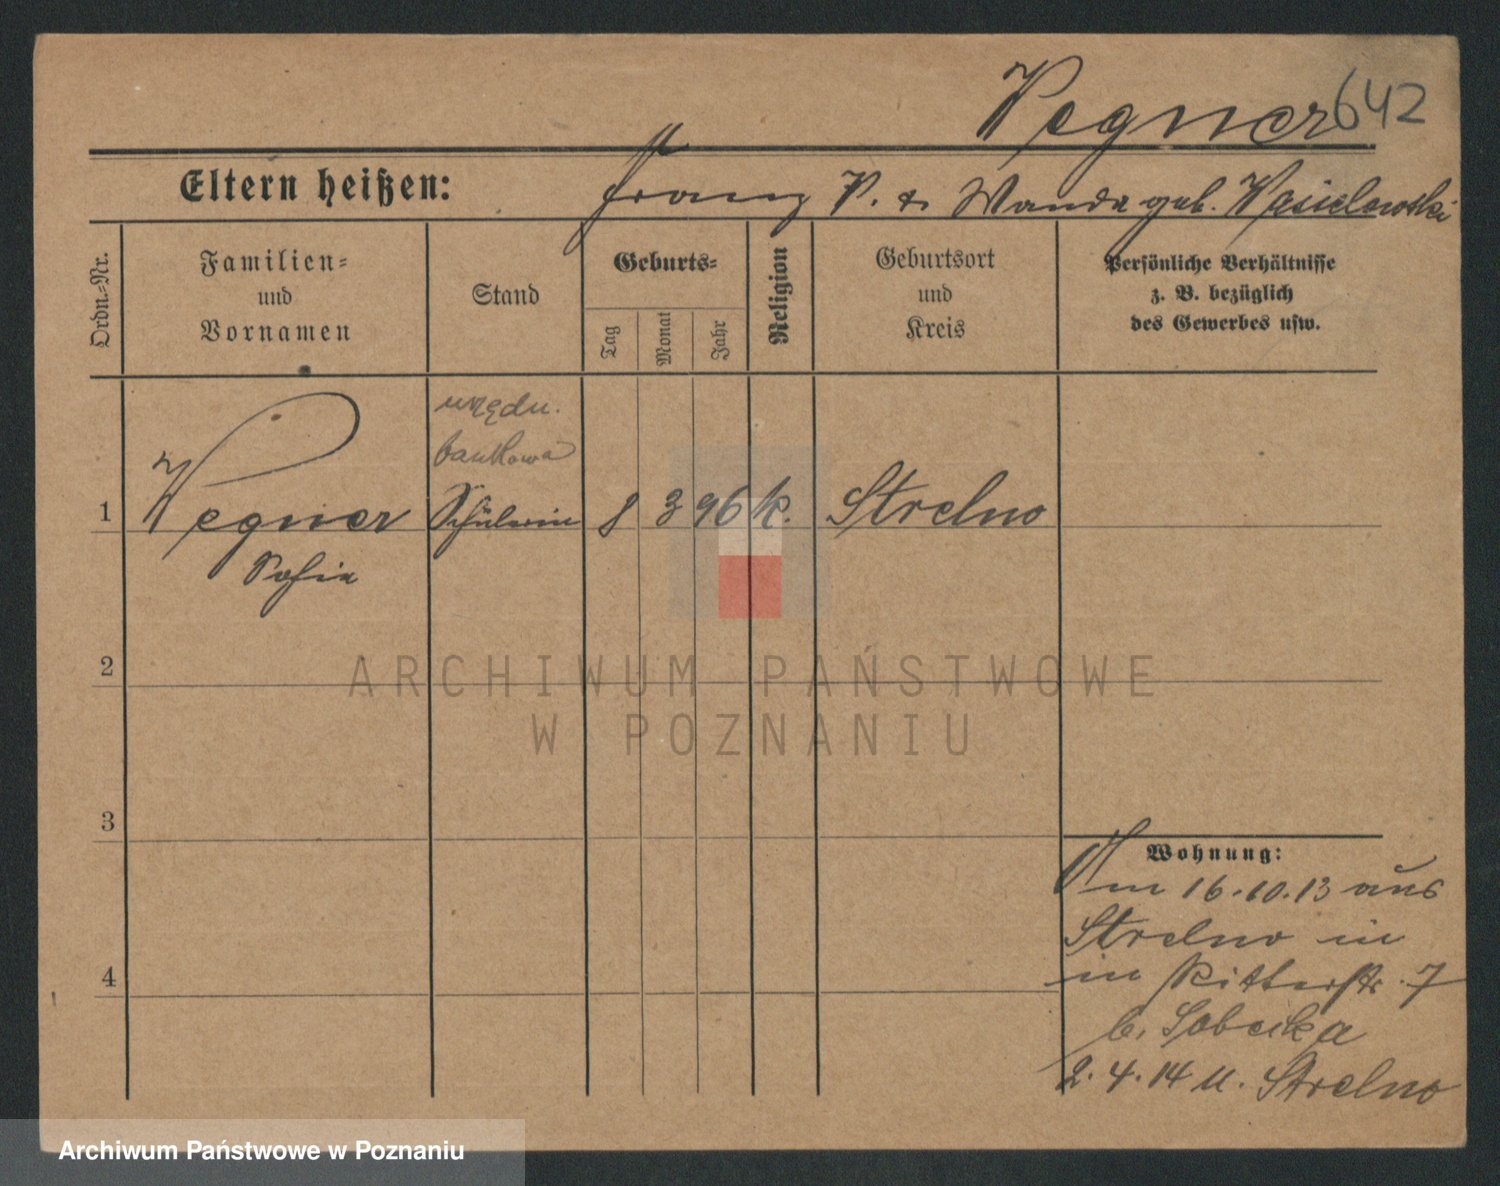 Wegner 642
Eltern heißen: Franz W. & Wanda geb. Wasielewski
Ordn.-Nr.
Familien-
und
Vornamen
Stand
Geburts-
Tag
Monat
Jahr
Religion
Geburtsort
und
Kreis
Persönliche Verhältnisse
z. B. bezüglich
des Gewerbes usw.
urzędn.
bankowa
1 Wegner Schülerin 8 3 96 k. Strelno
Sofia
2
3
4
Wohnung:
Am 16.10.13 aus
Strelno in
in Ritterstr. 7
b. Sobecka
2.4.14 n. Strelno
ARCHIWUM PAŃSTWOWE
W POZNANIU
Archiwum Państwowe w Poznaniu